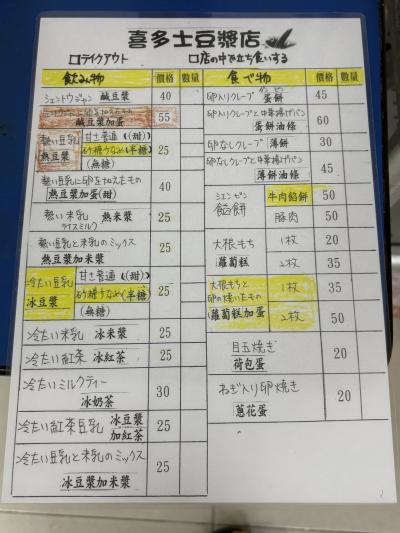 喜多士豆漿店
□テイクアウト
□店の中で立ち食いする
飲み物 價格 數量
シェントウジャン 鹹豆漿 40
鹹豆漿加蛋 55
熱い豆乳 甘さ普通(甜)
熱豆漿 砂糖少なめ(半糖) 25
(無糖)
熱い豆乳に卵を加えたもの
熱豆漿加蛋(甜) 40
熱い米乳 熱米漿
ライスミルク 25
熱い豆乳と米乳のミックス
熱豆漿加米漿 25
冷たい豆乳 甘さ普通(甜)
冰豆漿 砂糖少なめ(半糖) 25
(無糖)
冷たい米乳 冰米漿 25
冷たい紅茶 冰紅茶 25
冷たいミルクティー
冰奶茶 30
冷たい紅茶豆乳 冰豆漿
加紅茶 25
冷たい豆乳と米乳のミックス
冰豆漿加米漿 25
食べ物 價格 數量
卵入りクレープ
蛋餅 45
卵入りクレープと中華揚げパン
蛋餅油條 60
卵なしクレープ 薄餅 30
卵なしクレープと中華揚げパン
薄餅油條 45
シェンピン 牛肉餡餅 50
餡餅 豚肉 50
大根もち 1枚 20
蘿蔔糕 2枚 35
大根もちと
卵の焼いたもの 1枚 35
蘿蔔糕加蛋 2枚 50
目玉焼き
荷包蛋 20
ねぎ入り卵焼き
蔥花蛋 20